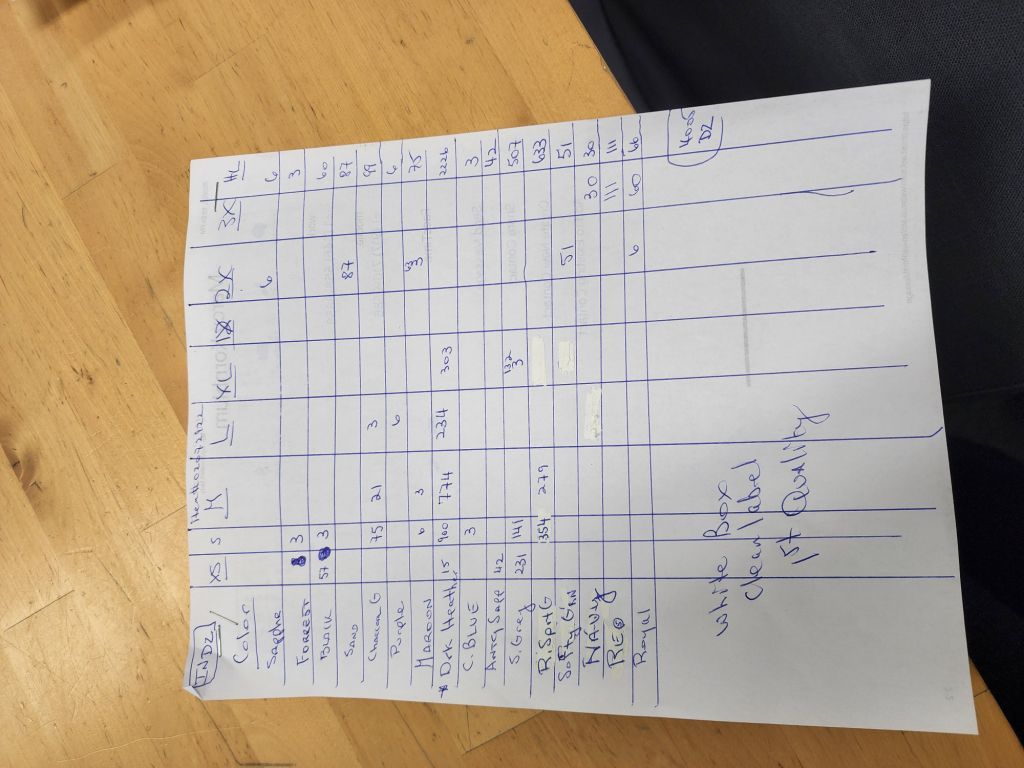 IND2
Heath02072122
Color XS S M L XL 1X 2X 3X
Sapphe 6 6
FOREST 3 3
Black 57 3 60
SAND 87 87
Charcoal G 75 21 3 99
Purple 6 6
MAROON 6 3 63 3 75
* Drk Heather 15 900 774 234 303 2226
C. BLUE 3 3
ANTQ SAPP 42 42
S. Grey 231 141 132 3 507
R. SprtG 354 279 633
SofTy G'RN 51 51
NAVY 30 30
RED 111 111
Royal 6 60 66
4005
D2
White Box
Clean label
1st Quality